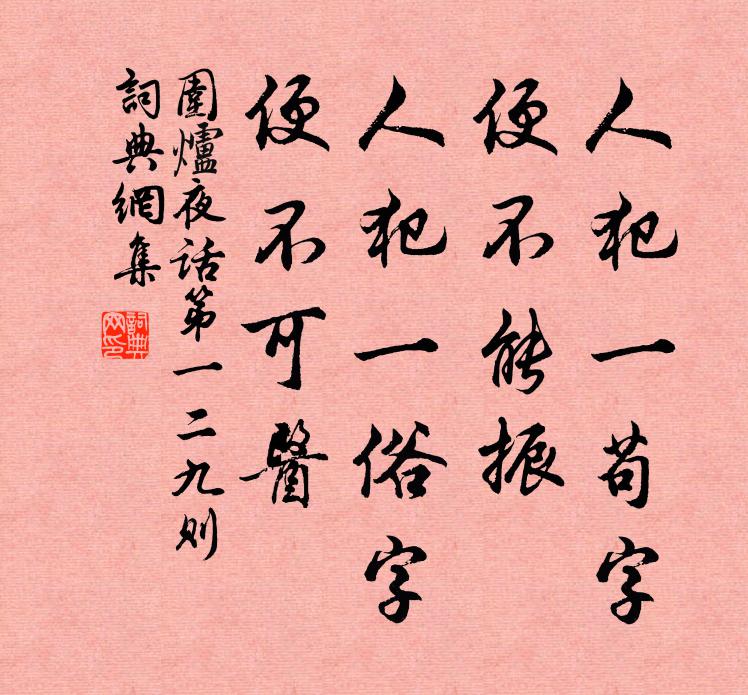 人犯一苟字
便不能振
人犯一俗字
便不可醫
圍爐夜话第一二九则
詞典網集
詞典
网印